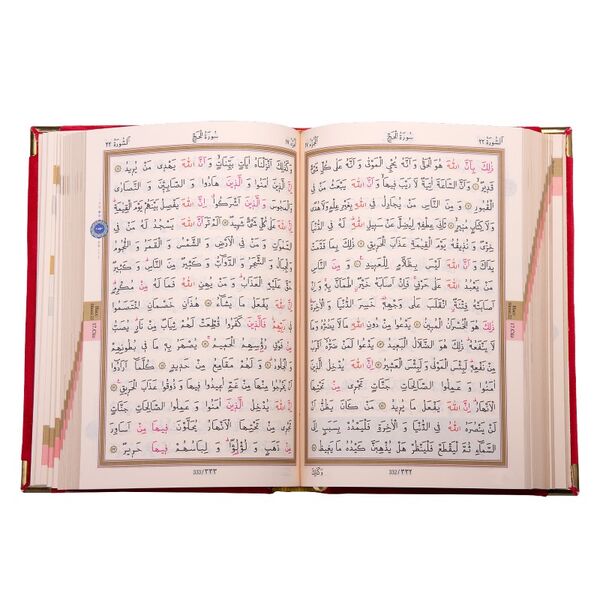 اَلسُّورَةُ ٢٢
سُورَةُ الْحَجِّ
اَلْجُزْءُ ١٧
ذٰلِكَ بِاَنَّ اللّٰهَ هُوَ الْحَقُّ وَاَنَّهُ يُحْيِ الْمَوْتٰى وَاَنَّهُ عَلٰى كُلِّ شَيْءٍ
قَدِيرٌ وَاَنَّ السَّاعَةَ اٰتِيَةٌ لَا رَيْبَ فِيهَا وَاَنَّ اللّٰهَ يَبْعَثُ مَنْ فِي
الْقُبُورِ وَمِنَ النَّاسِ مَنْ يُجَادِلُ فِي اللّٰهِ بِغَيْرِ عِلْمٍ وَلَا هُدًى
وَلَا كِتَابٍ مُنِيرٍ ثَانِيَ عِطْفِهِ لِيُضِلَّ عَنْ سَبِيلِ اللّٰهِ لَهُ فِي الدُّنْيَا
خِزْيٌ وَنُذِيقُهُ يَوْمَ الْقِيٰمَةِ عَذَابَ الْحَرِيقِ ذٰلِكَ بِمَا قَدَّمَتْ
يَدَاكَ وَاَنَّ اللّٰهَ لَيْسَ بِظَلَّامٍ لِلْعَبِيدِ وَمِنَ النَّاسِ
مَنْ يَعْبُدُ اللّٰهَ عَلٰى حَرْفٍ فَاِنْ اَصَابَهُ خَيْرٌ اطْمَاَنَّ بِهِ وَاِنْ
اَصَابَتْهُ فِتْنَةٌ انْقَلَبَ عَلٰى وَجْهِهِ خَسِرَ الدُّنْيَا وَالْاٰخِرَةَ
ذٰلِكَ هُوَ الْخُسْرَانُ الْمُبِينُ يَدْعُوا مِنْ دُونِ اللّٰهِ مَا لَا يَضُرُّهُ وَمَا
لَا يَنْفَعُهُ ذٰلِكَ هُوَ الضَّلَالُ الْبَعِيدُ يَدْعُوا لَمَنْ ضَرُّهُ اَقْرَبُ
مِنْ نَفْعِهِ لَبِئْسَ الْمَوْلٰى وَلَبِئْسَ الْعَشِيرُ اِنَّ اللّٰهَ يُدْخِلُ
الَّذِينَ اٰمَنُوا وَعَمِلُوا الصَّالِحَاتِ جَنَّاتٍ تَجْرِي مِنْ تَحْتِهَا
الْاَنْهَارُ اِنَّ اللّٰهَ يَفْعَلُ مَا يُرِيدُ مَنْ كَانَ يَظُنُّ اَنْ
لَنْ يَنْصُرَهُ اللّٰهُ فِي الدُّنْيَا وَالْاٰخِرَةِ فَلْيَمْدُدْ بِسَبَبٍ اِلَى
السَّمَاءِ ثُمَّ لْيَقْطَعْ فَلْيَنْظُرْ هَلْ يُذْهِبَنَّ كَيْدُهُ مَا يَغِيظُ
332/٣٣٢
وَكَذٰلِكَ
اَلسُّورَةُ ٢٢
سُورَةُ الْحَجِّ
وَكَذٰلِكَ اَنْزَلْنَاهُ اٰيَاتٍ بَيِّنَاتٍ وَاَنَّ اللّٰهَ يَهْدِي مَنْ يُرِيدُ
اِنَّ الَّذِينَ اٰمَنُوا وَالَّذِينَ هَادُوا وَالصَّابِـِٔينَ وَالنَّصَارٰى
وَالْمَجُوسَ وَالَّذِينَ اَشْرَكُوا اِنَّ اللّٰهَ يَفْصِلُ بَيْنَهُمْ يَوْمَ الْقِيٰمَةِ
اِنَّ اللّٰهَ عَلٰى كُلِّ شَيْءٍ شَهِيدٌ اَلَمْ تَرَ اَنَّ اللّٰهَ يَسْجُدُ لَهُ مَنْ فِي
السَّمٰوَاتِ وَمَنْ فِي الْاَرْضِ وَالشَّمْسُ وَالْقَمَرُ وَالنُّجُومُ
وَالْجِبَالُ وَالشَّجَرُ وَالدَّوَابُّ وَكَثِيرٌ مِنَ النَّاسِ وَكَثِيرٌ
حَقَّ عَلَيْهِ الْعَذَابُ وَمَنْ يُهِنِ اللّٰهُ فَمَا لَهُ مِنْ مُكْرِمٍ
اِنَّ اللّٰهَ يَفْعَلُ مَا يَشَاءُ هٰذَانِ خَصْمَانِ اخْتَصَمُوا
فِي رَبِّهِمْ فَالَّذِينَ كَفَرُوا قُطِّعَتْ لَهُمْ ثِيَابٌ مِنْ نَارٍ يُصَبُّ
مِنْ فَوْقِ رُؤُسِهِمُ الْحَمِيمُ يُصْهَرُ بِهِ مَا فِي بُطُونِهِمْ
وَالْجُلُودُ وَلَهُمْ مَقَامِعُ مِنْ حَدِيدٍ كُلَّمَا اَرَادُوا
اَنْ يَخْرُجُوا مِنْهَا مِنْ غَمٍّ اُعِيدُوا فِيهَا وَذُوقُوا عَذَابَ الْحَرِيقِ
اِنَّ اللّٰهَ يُدْخِلُ الَّذِينَ اٰمَنُوا وَعَمِلُوا الصَّالِحَاتِ جَنَّاتٍ
تَجْرِي مِنْ تَحْتِهَا الْاَنْهَارُ يُحَلَّوْنَ فِيهَا مِنْ اَسَاوِرَ
مِنْ ذَهَبٍ وَلُؤْلُؤًا وَلِبَاسُهُمْ فِيهَا حَرِيرٌ
333/٣٣٣